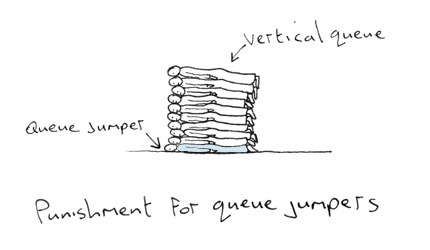 vertical queue
Queue jumper
Punishment for queue jumpers